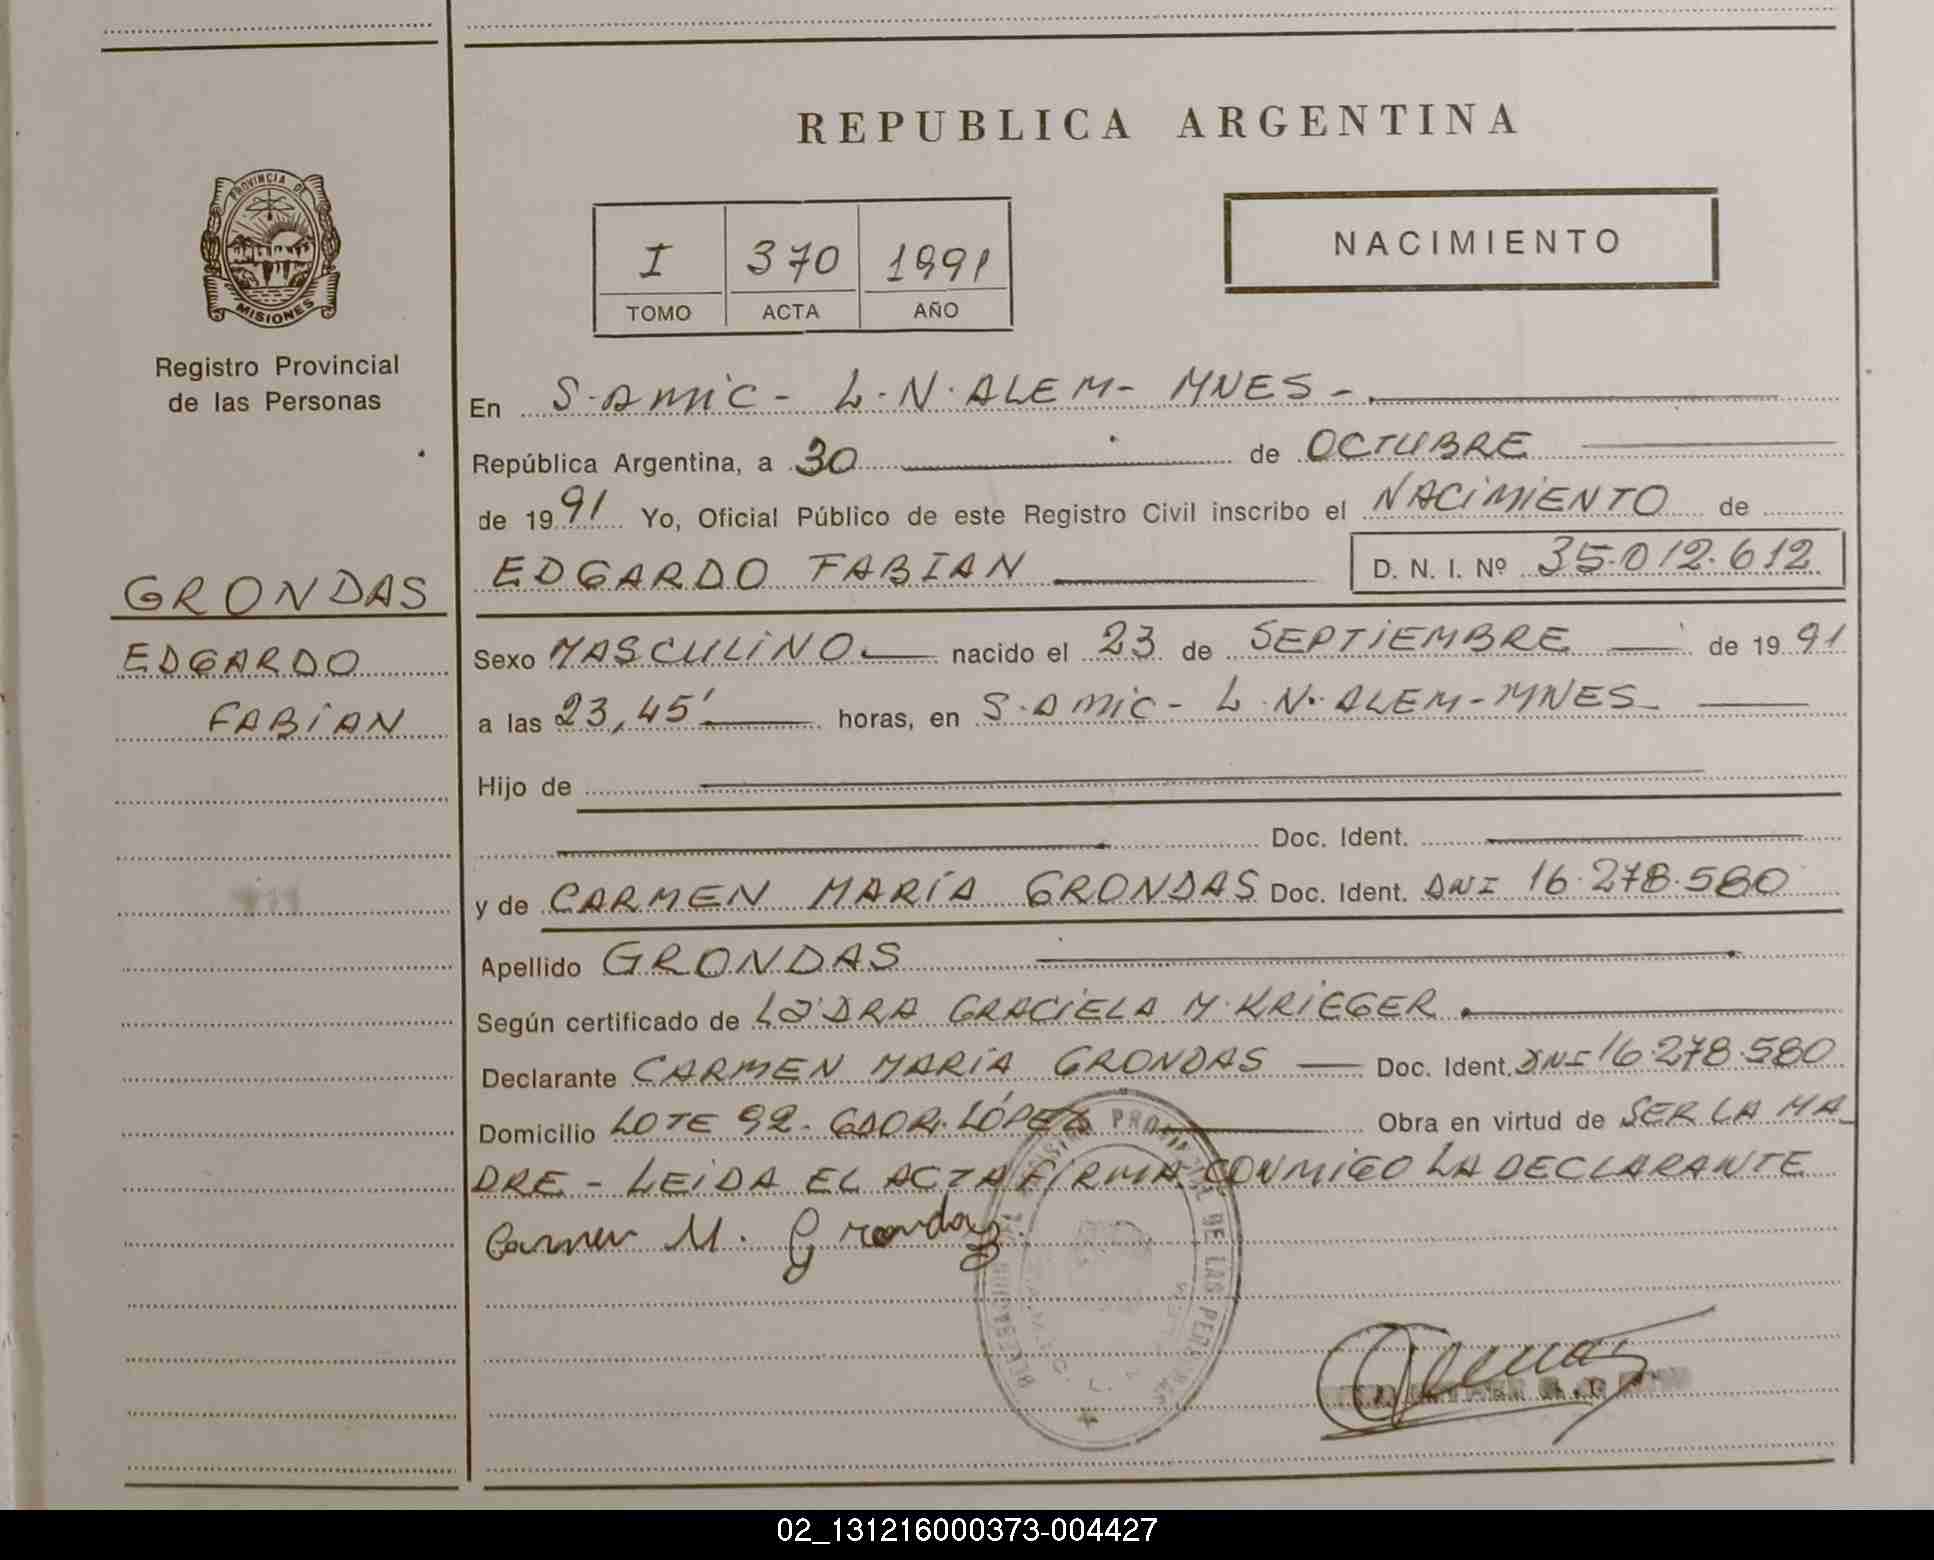 REPUBLICA ARGENTINA
PROVINCIA DE
MISIONES
Registro Provincial
de las Personas
I 370 1991
TOMO ACTA AÑO
NACIMIENTO
En S. AMIC - L. N. ALEM - MNES -
República Argentina, a 30 de OCTUBRE
de 1991 Yo, Oficial Público de este Registro Civil inscribo el NACIMIENTO de
EDGARDO FABIAN D. N. I. Nº 35.012.612
GRONDAS
EDGARDO
FABIAN
Sexo MASCULINO nacido el 23 de SEPTIEMBRE de 1991
a las 23,45' horas, en S. AMIC - L. N. ALEM - MNES
Hijo de
Doc. Ident.
y de CARMEN MARÍA GRONDAS Doc. Ident. DNI 16.278.580
Apellido GRONDAS
Según certificado de LA DRA GRACIELA M. KRIEGER
Declarante CARMEN MARIA GRONDAS Doc. Ident. DNI 16.278.580
Domicilio LOTE 92 - GDOR. LÓPEZ Obra en virtud de SER LA MA
DRE - LEIDA EL ACTA FIRMA CONMIGO LA DECLARANTE
Carmen M. Grondas
DE LAS
02_131216000373-004427